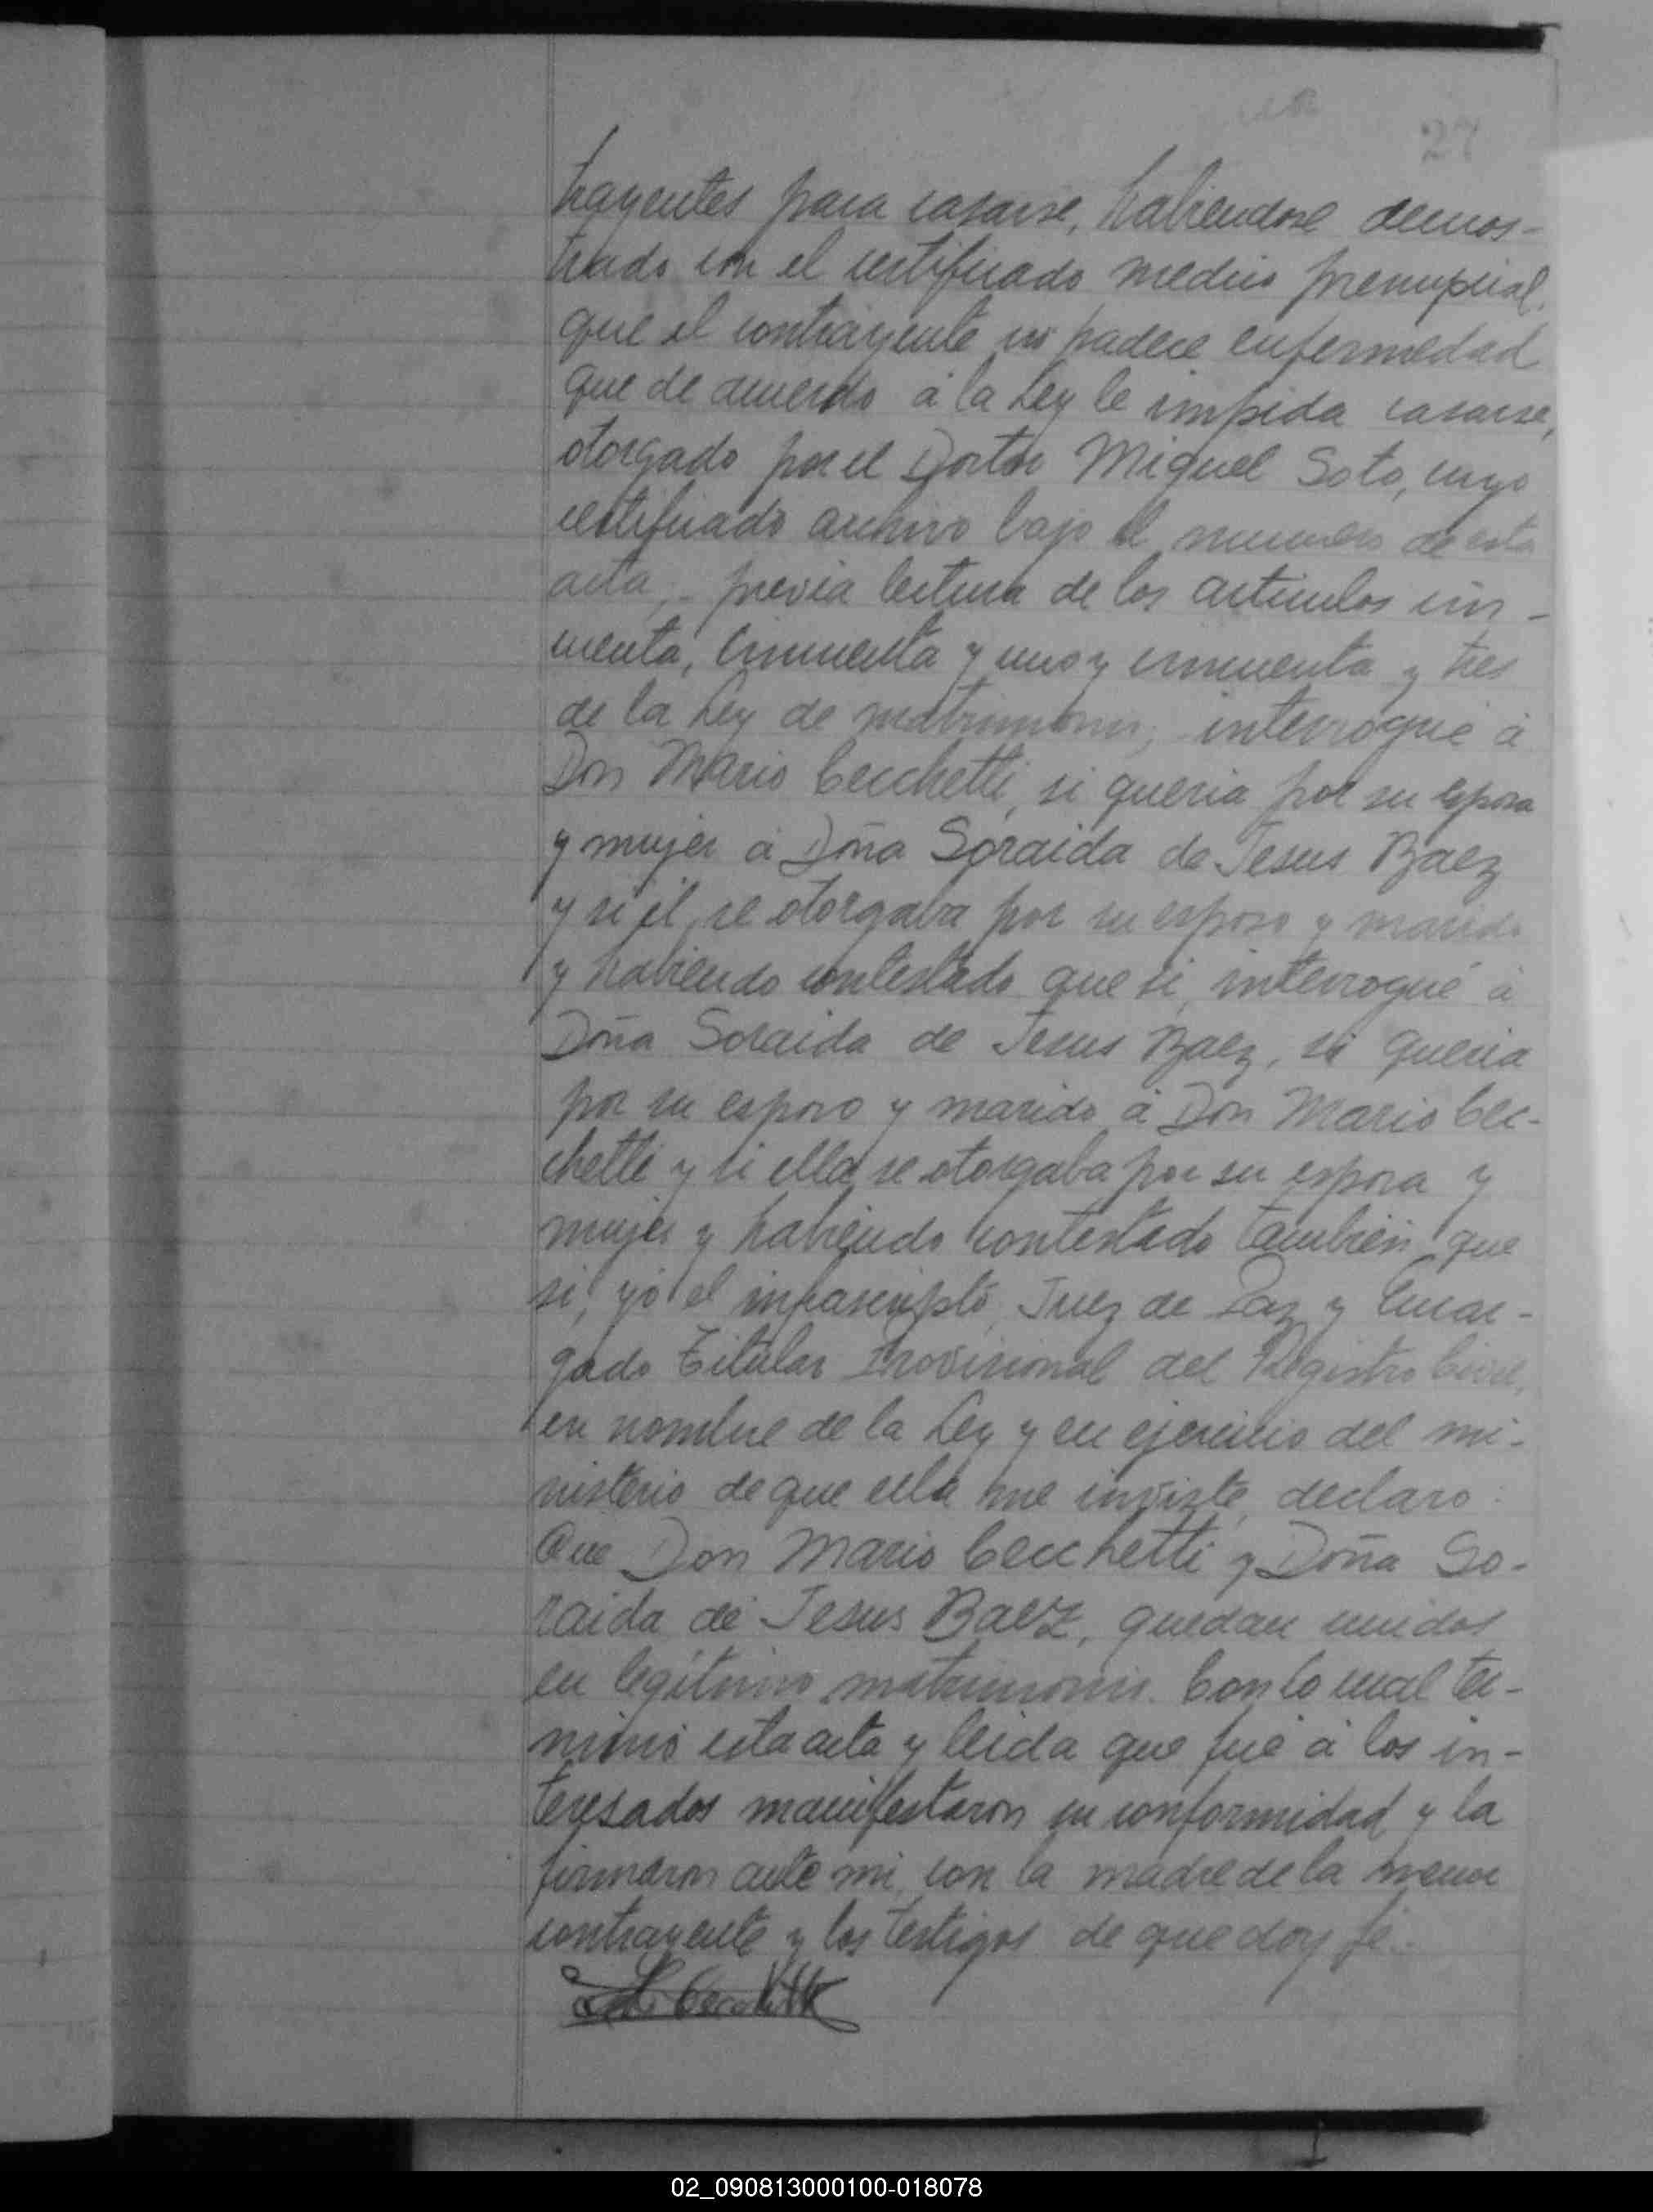 27
trayentes para casarse, habiendose demos-
trado con el certificado medico prenupcial,
que el contrayente no padece enfermedad
que de acuerdo á la Ley le impida casarse,
otorgado por el Doctor Miguel Soto, cuyo
certificado archivo bajo el numero de esta
acta,- previa lectura de los articulos cin-
cuenta, cincuenta y uno y cincuenta y tres
de la Ley de matrimonio, interrogué á
Don Mario Cecchetti, si queria por su esposa
y mujer á Doña Soraida de Jesus Baez
y si él, se otorgaba por su esposo y marido
y habiendo contestado que si, interrogué á
Doña Soraida de Jesus Baez, si queria
por su esposo y marido á Don Mario Cec-
chetti y si ella, se otorgaba por su esposa y
mujer y habiendo contestado también que
si, yó el infrascripto, Juez de Paz y Encar-
gado Titular Provisional del Registro Civil,
en nombre de la Ley y en ejercicio del mi-
nisterio de que ella me inviste, declaro:
Que Don Mario Cecchetti y Doña So-
raida de Jesus Baez, quedan unidos
en legítimo matrimonio. Con lo cual ter-
minó esta acta y leida que fué á los in-
teresados manifestaron su conformidad y la
firmaron ante mi, con la madre de la menor
contrayente y los testigos de que doy fé.-
02_090813000100-018078